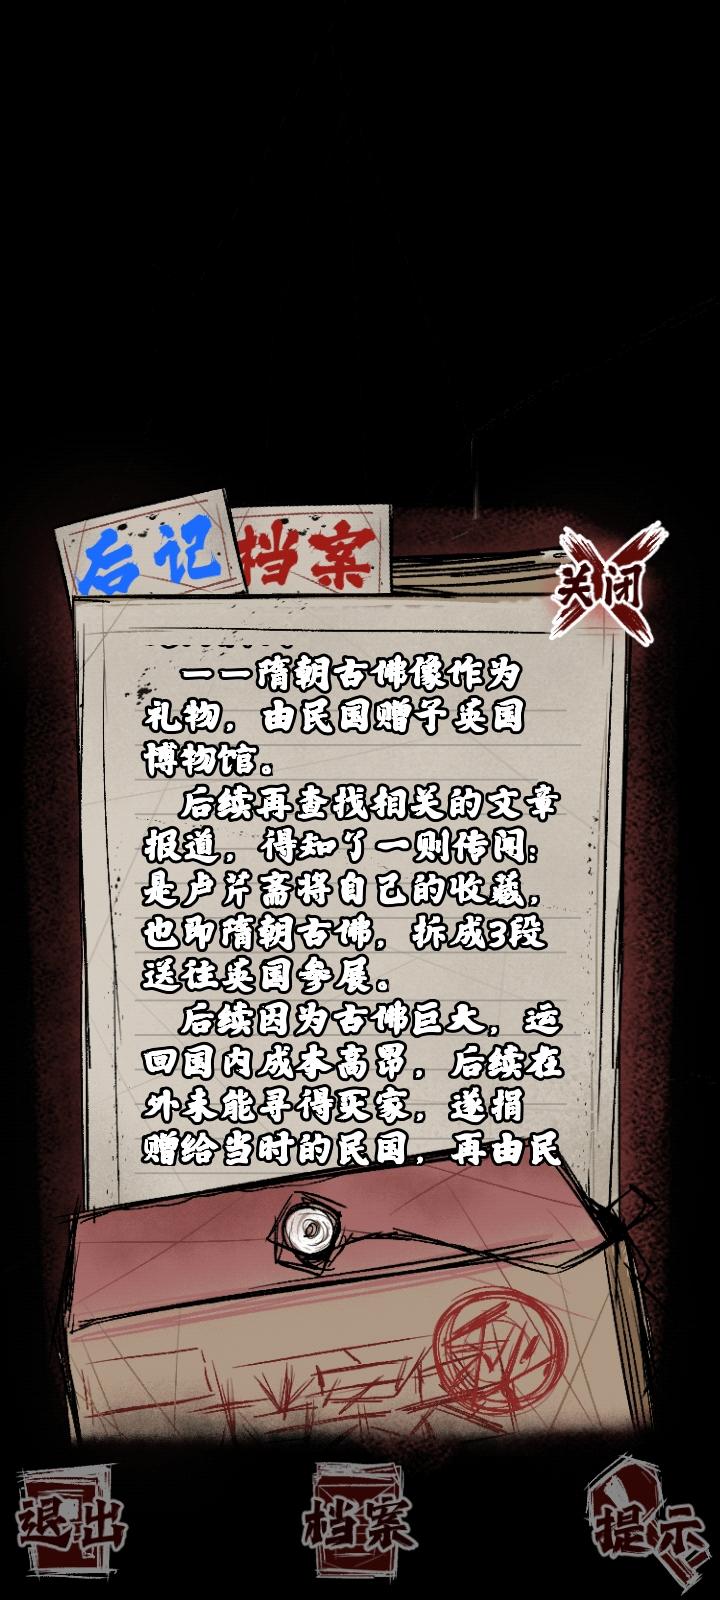 后记
档案
关闭
一一隋朝古佛像作为
礼物，由民国赠予英国
博物馆。
后续再查找相关的文章
报道，得知了一则传闻：
是卢芹斋将自己的收藏，
也即隋朝古佛，拆成3段
送往英国参展。
后续因为古佛巨大，运
回国内成本高昂，后续在
外未能寻得买家，遂捐
赠给当时的民国，再由民
退出
档案
提示